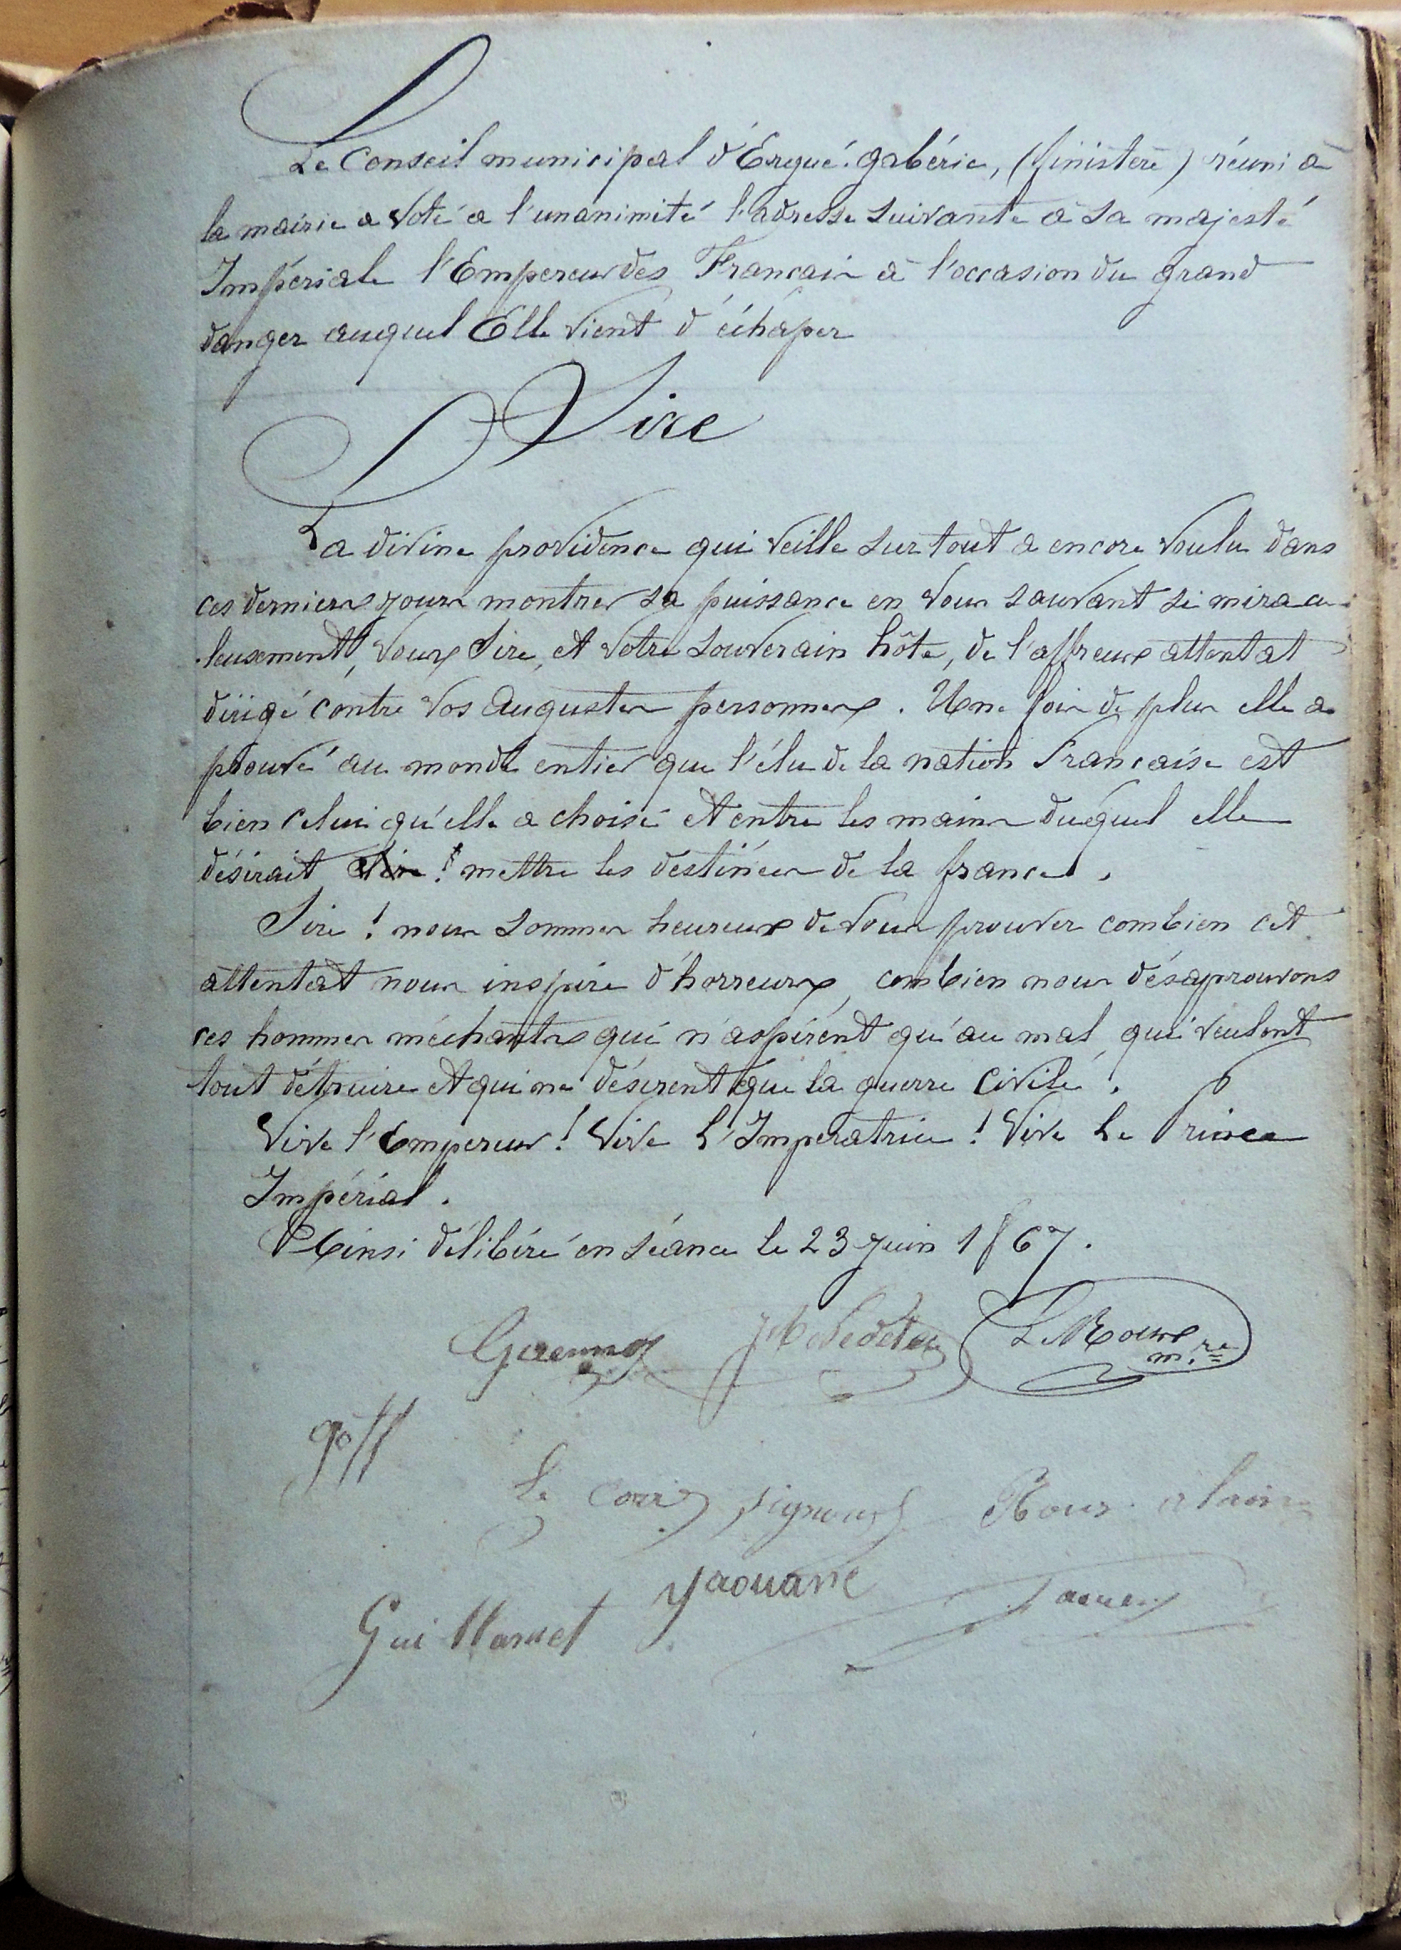 Le Conseil municipal d'Ergué-gabéric, (finistère) réuni à
la mairie a voté a l'unanimité l'adresse suivante à sa majesté
Impériale l'Empereur des Français à l'occasion du grand
danger auquel Elle vient d'échâper
Sire
La divine providence qui veille sur tout a encore voulu dans
ces derniers jours montrer sa puissance en vous sauvant si miracu-
-leusement, vous, Sire, et votre souverain hôte, de l'affreux attentat
dirigé contre vos Augustes personnes. Une fois de plus elle a
prouvé au monde entier que l'élu de la nation Française est
bien celui qu'elle a choisi et entre les mains duquel elle
désirait Sire ! mettre les destinées de la france.
Sire ! nous sommes heureux de vous prouver combien cet
attentat nous inspire d'horreurs, combien nous désaprouvons
ces hommes méchants qui n'aspirent qu'au mal, qui veulent
tout détruire et qui ne désirent que la guerre civile.
Vive l'Empereur ! Vive L'Imperatrice ! Vive Le Prince
Impérial.
Ainsi délibéré en séance le 23 juin 1867.
Le Roux
m.re
goff
Le Corre Signour Rous alain
yaouanc
Guillamet